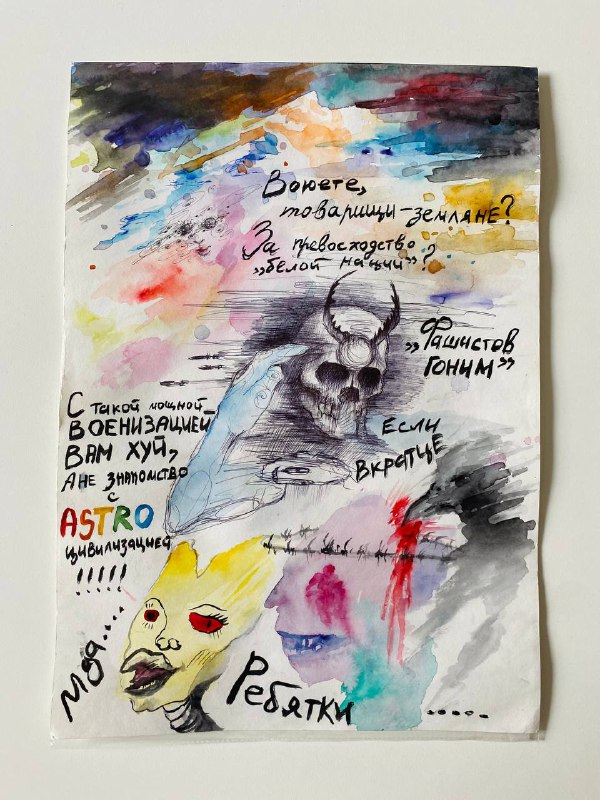 Воюете,
товарищи-земляне?
За превосходство
„белой нации"?
„Фашистов
гоним"
Если
вкратце
С такой мощной
ВОЕНИЗАЦИЕЙ
ВАМ ХУЙ,
А НЕ ЗНАКОМСТВО
С
ASTRO
цивилизацией
!!!!!
Мда....
Ребятки
.....